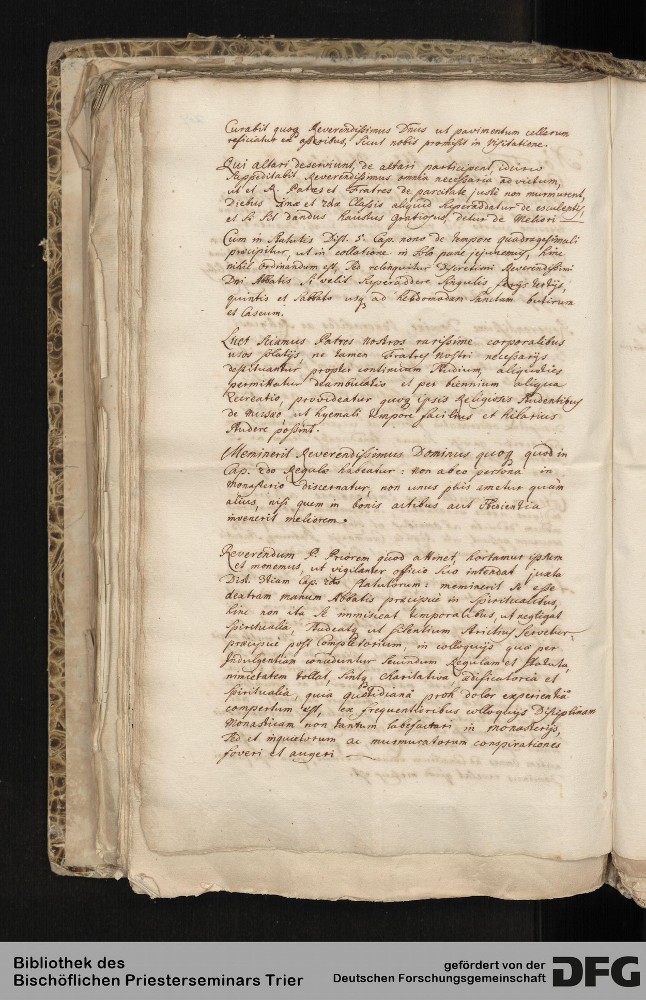 Curabit quoq Reverendissimus Dnus ut pavimentum cellarum
reficiatur ex asseribus, sicut nobis promisit in Visitatione.
Qui altari deserviunt, de altari participent, idcirco
suppeditabit Reverendissimus omnia necessaria ad victum,
ut et R. Patres et Fratres de parcitate justè non murmurent,
Diebus imæ et 2dæ Classis aliquid superaddatur de esculentis,
et si sit dandus haustus gratiosus, detur de meliori
Cum in statutis Dist. 3. Cap. nono de tempore quadragesimali
præcipitur, ut in collatione in solo pane jejunemus, hinc
nihil ordinandum est, sed relinquitur discretioni Reverendissimi
Dni Abbatis si velit superaddere singulis ferijs tertijs,
quintis et sabbato usq ad hebdomadam sanctam butirum
et caseum.
Licet sciamus Patres nostros rarissime corporalibus
usos solatijs, ne tamen Fratres nostri necessarijs
destituantur propter continuum studium, aliquoties
permittatur deambulatio et per biennium aliqua
recreatio, provideatur quoq ipsis Religiosis studentibus
de musæo ut hyemali tempore facilius et hilarius
studere possint.
Meminerit Reverendissimus Dominus quoq quod in
Cap. 2do Regulæ habeatur: non ab eo persona in
monasterio discernatur, non unus plus ametur quàm
alius, nisi quem in bonis actibus aut obedientia
invenerit meliorem.
Reverendum P. Priorem quod attinet, hortamur ipsum
et monemus, ut vigilanter officio suo intendat juxta
Dist. 2dam Cap. 2do statutorum: meminerit se esse
dextram manum Abbatis præcipuè in spiritualibus,
hinc non ita se immisceat temporalibus, ut negligat
spiritualia, studeat, ut silentium strictius servetur
præcipuè post Completorium, in colloquijs quæ per
Indulgentiam conceduntur secundum Regulam et statuta,
nimietatem tollat, sintq charitativa, ædificatoria et
spiritualia, quia quotidianâ proh dolor experientiâ
compertum est, ex frequentioribus colloquijs Disciplinam
Monasticam non tantum labefactari in monasterijs,
sed et inquietorum ac murmuratorum conspirationes
foveri et augeri
Bibliothek des
Bischöflichen Priesterseminars Trier
gefördert von der
Deutschen Forschungsgemeinschaft
DFG